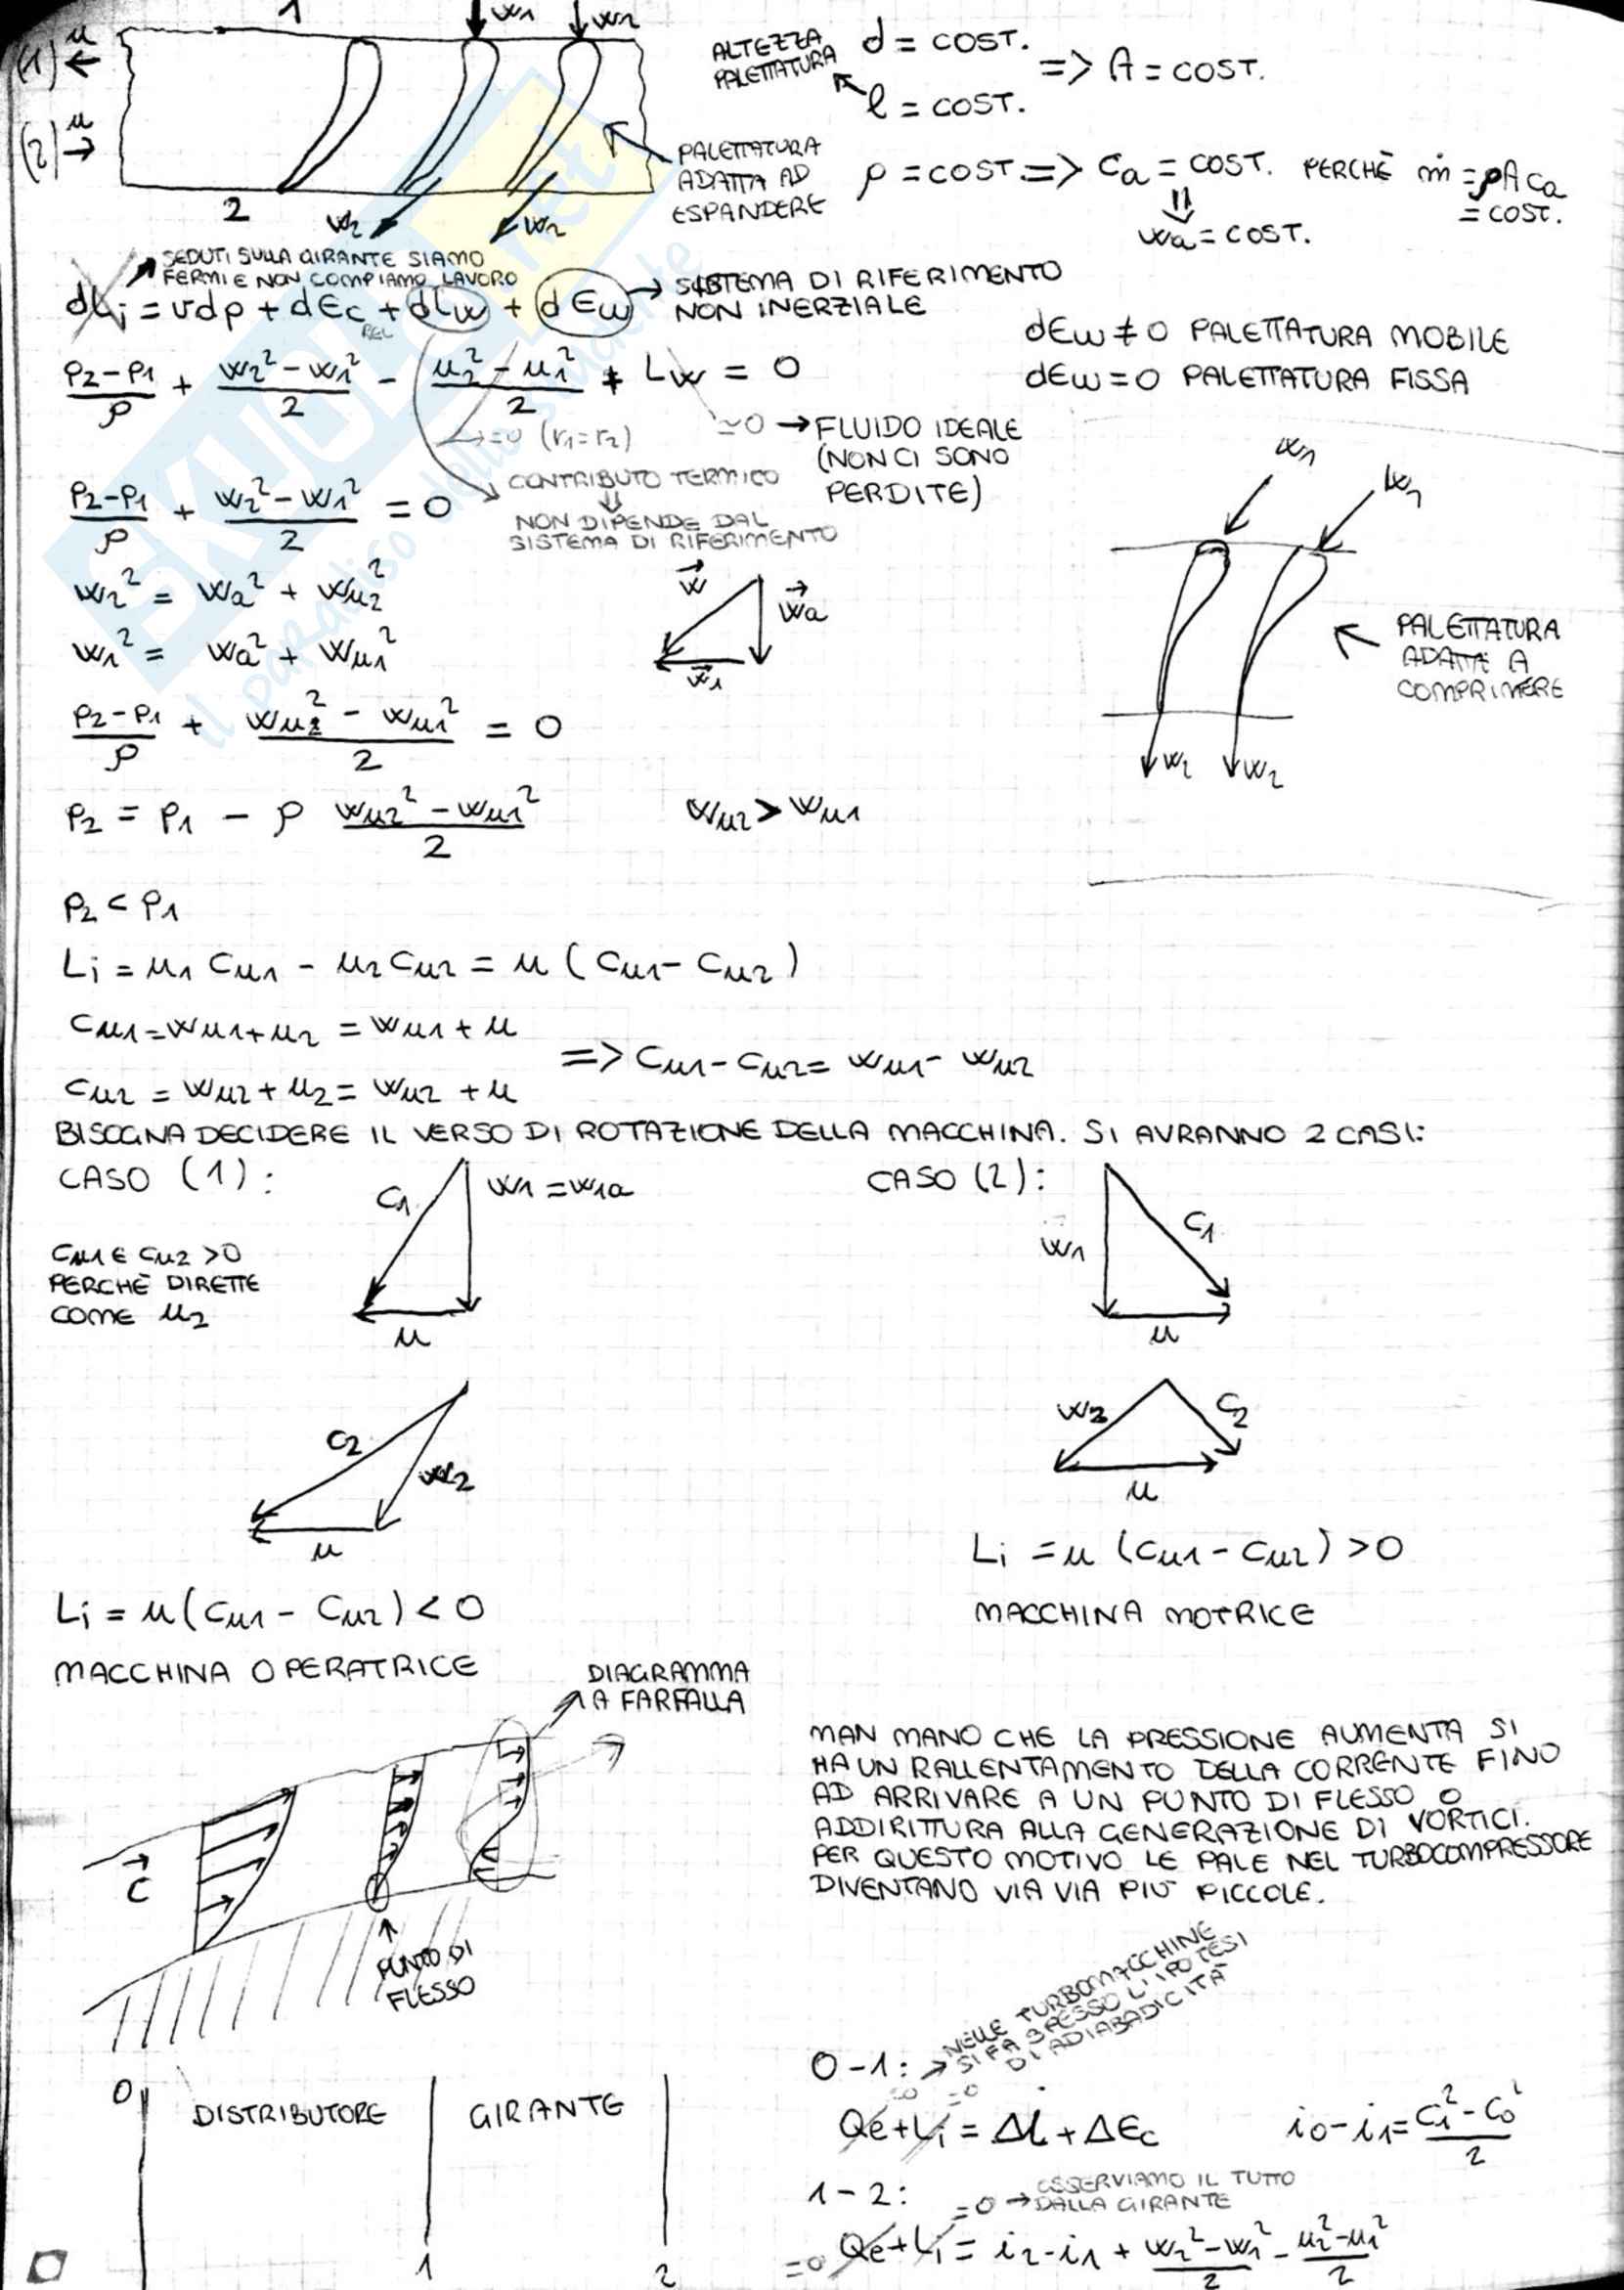 1
w1
w1
(1) u ←
(2) u →
2
w2
w2
ALTEZZA
PALETTATURA
d = COST.
l = COST.
=> A = COST.
PALETTATURA
ADATTA AD
ESPANDERE
ρ = COST => Ca = COST. PERCHÈ ṁ = ρACa
= COST.
wa = COST.
SEDUTI SULLA GIRANTE SIAMO
FERMI E NON COMPIAMO LAVORO
dLi = vdp + dEc + dLw + dEw → SISTEMA DI RIFERIMENTO
REL
NON INERZIALE
dEw ≠ 0 PALETTATURA MOBILE
dEw = 0 PALETTATURA FISSA
(p2-p1)/ρ + (w2² - w1²)/2 - (u2² - u1²)/2 + Lw = 0
=0 (r1=r2)
≃0 → FLUIDO IDEALE
(NON CI SONO
PERDITE)
CONTRIBUTO TERMICO
⇓
NON DIPENDE DAL
SISTEMA DI RIFERIMENTO
(p2-p1)/ρ + (w2² - w1²)/2 = 0
w2² = wa² + wu2²
w1² = wa² + wu1²
w
wa
w1
w1
w1
PALETTATURA
ADATTE A
COMPRIMERE
w2
w2
(p2-p1)/ρ + (wu2² - wu1²)/2 = 0
p2 = p1 - ρ (wu2² - wu1²)/2
wu2 > wu1
p2 < p1
Li = u1 Cu1 - u2 Cu2 = u (Cu1 - Cu2)
Cu1 = wu1 + u2 = wu1 + u
=> Cu1 - Cu2 = wu1 - wu2
Cu2 = wu2 + u2 = wu2 + u
BISOGNA DECIDERE IL VERSO DI ROTAZIONE DELLA MACCHINA. SI AVRANNO 2 CASI:
CASO (1):
C1
w1 = w1a
u
CASO (2):
w1
C1
u
Cu1 E Cu2 >0
PERCHÈ DIRETTE
COME u2
C2
w2
u
w2
C2
u
Li = u (Cu1 - Cu2) > 0
MACCHINA MOTRICE
Li = u (Cu1 - Cu2) < 0
MACCHINA OPERATRICE
DIAGRAMMA
A FARFALLA
C
PUNTO DI
FLESSO
MAN MANO CHE LA PRESSIONE AUMENTA SI
HA UN RALLENTAMENTO DELLA CORRENTE FINO
AD ARRIVARE A UN PUNTO DI FLESSO O
ADDIRITTURA ALLA GENERAZIONE DI VORTICI.
PER QUESTO MOTIVO LE PALE NEL TURBOCOMPRESSORE
DIVENTANO VIA VIA PIÙ PICCOLE.
0
DISTRIBUTORE
GIRANTE
1
2
0-1: →
NELLE TURBOMACCHINE
SI FA SPESSO L'IPOTESI
DI ADIABADICITÀ
=0 =0
Qe + Li = Δi + ΔEc
i0 - i1 = (C1² - C0²)/2
1-2:
=0 → OSSERVIAMO IL TUTTO
DALLA GIRANTE
=0 Qe + Li = i2 - i1 + (w2² - w1²)/2 - (u2² - u1²)/2
SKUOLA.net
il paradiso dello studente